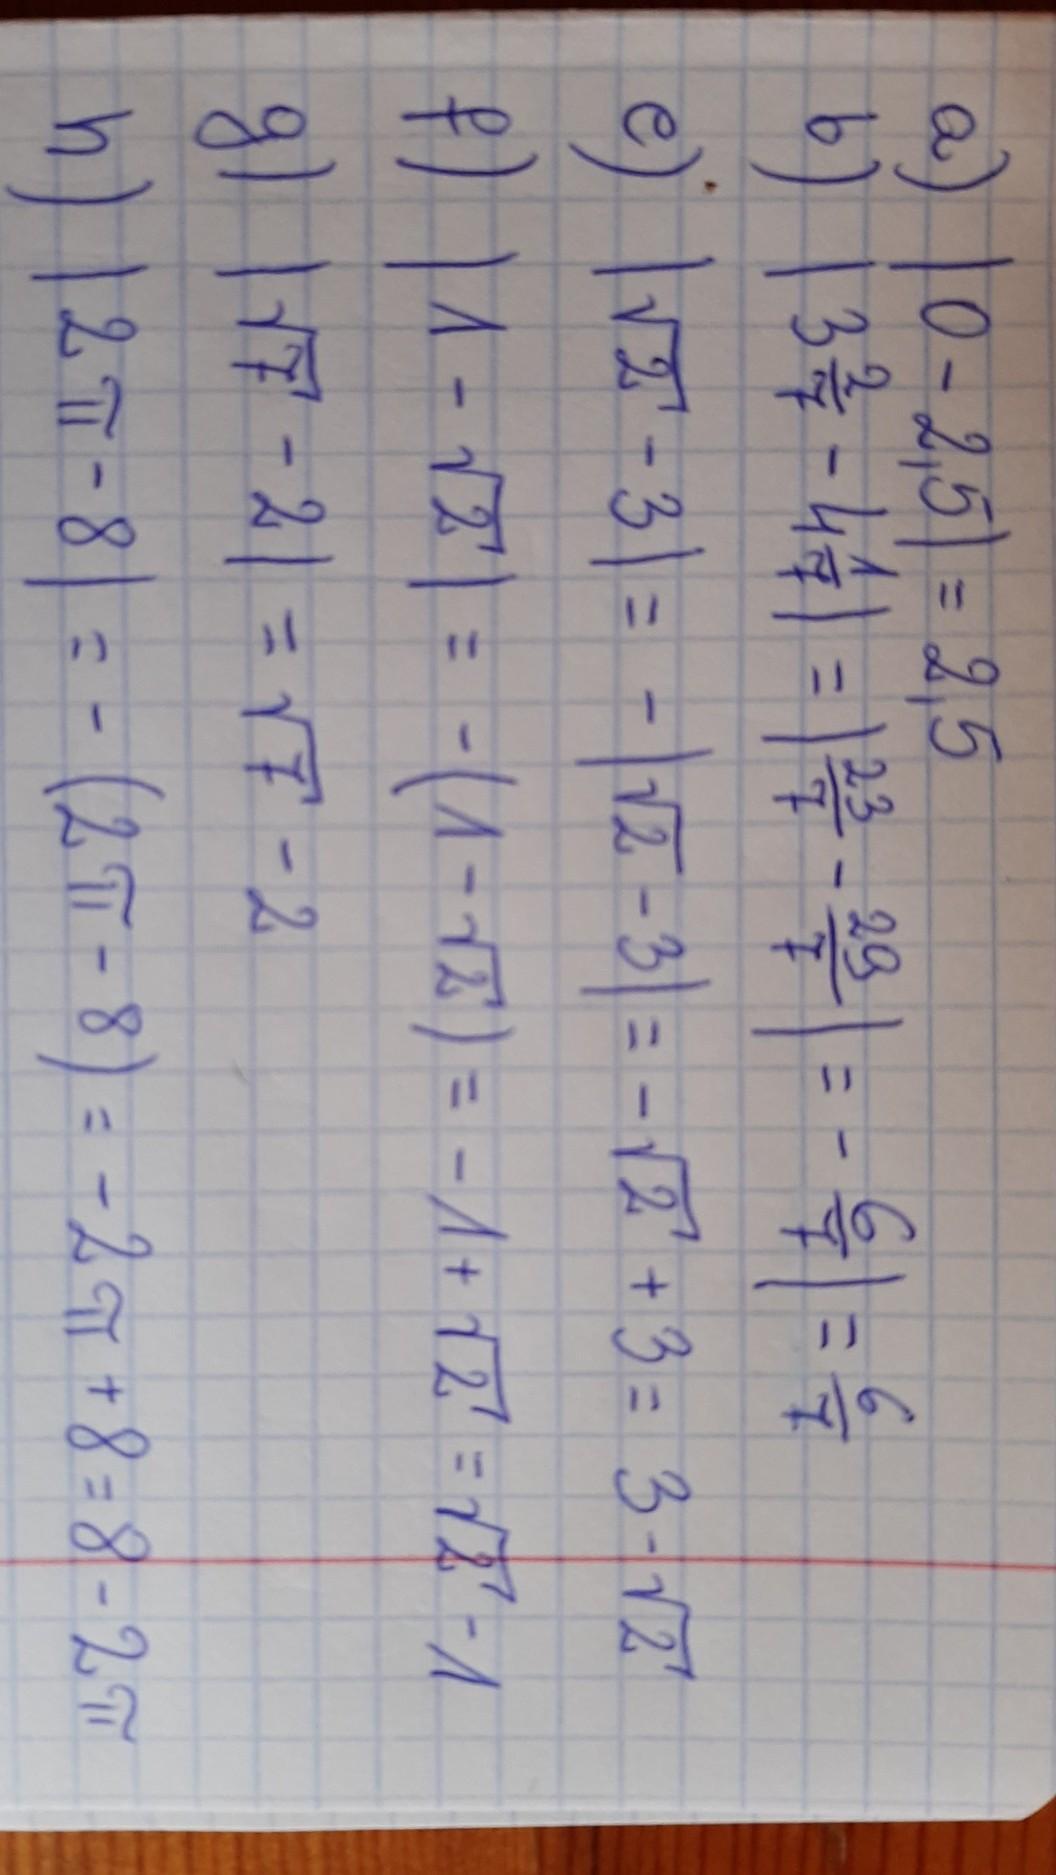 a) |0 - 2,5| = 2,5
b) |3 2/7 - 4 1/7| = |23/7 - 29/7| = - 6/7| = 6/7
e) |√2 - 3| = - |√2 - 3| = - √2 + 3 = 3 - √2
f) |1 - √2| = - (1 - √2) = - 1 + √2 = √2 - 1
g) |√7 - 2| = √7 - 2
h) |2π - 8| = - (2π - 8) = - 2π + 8 = 8 - 2π